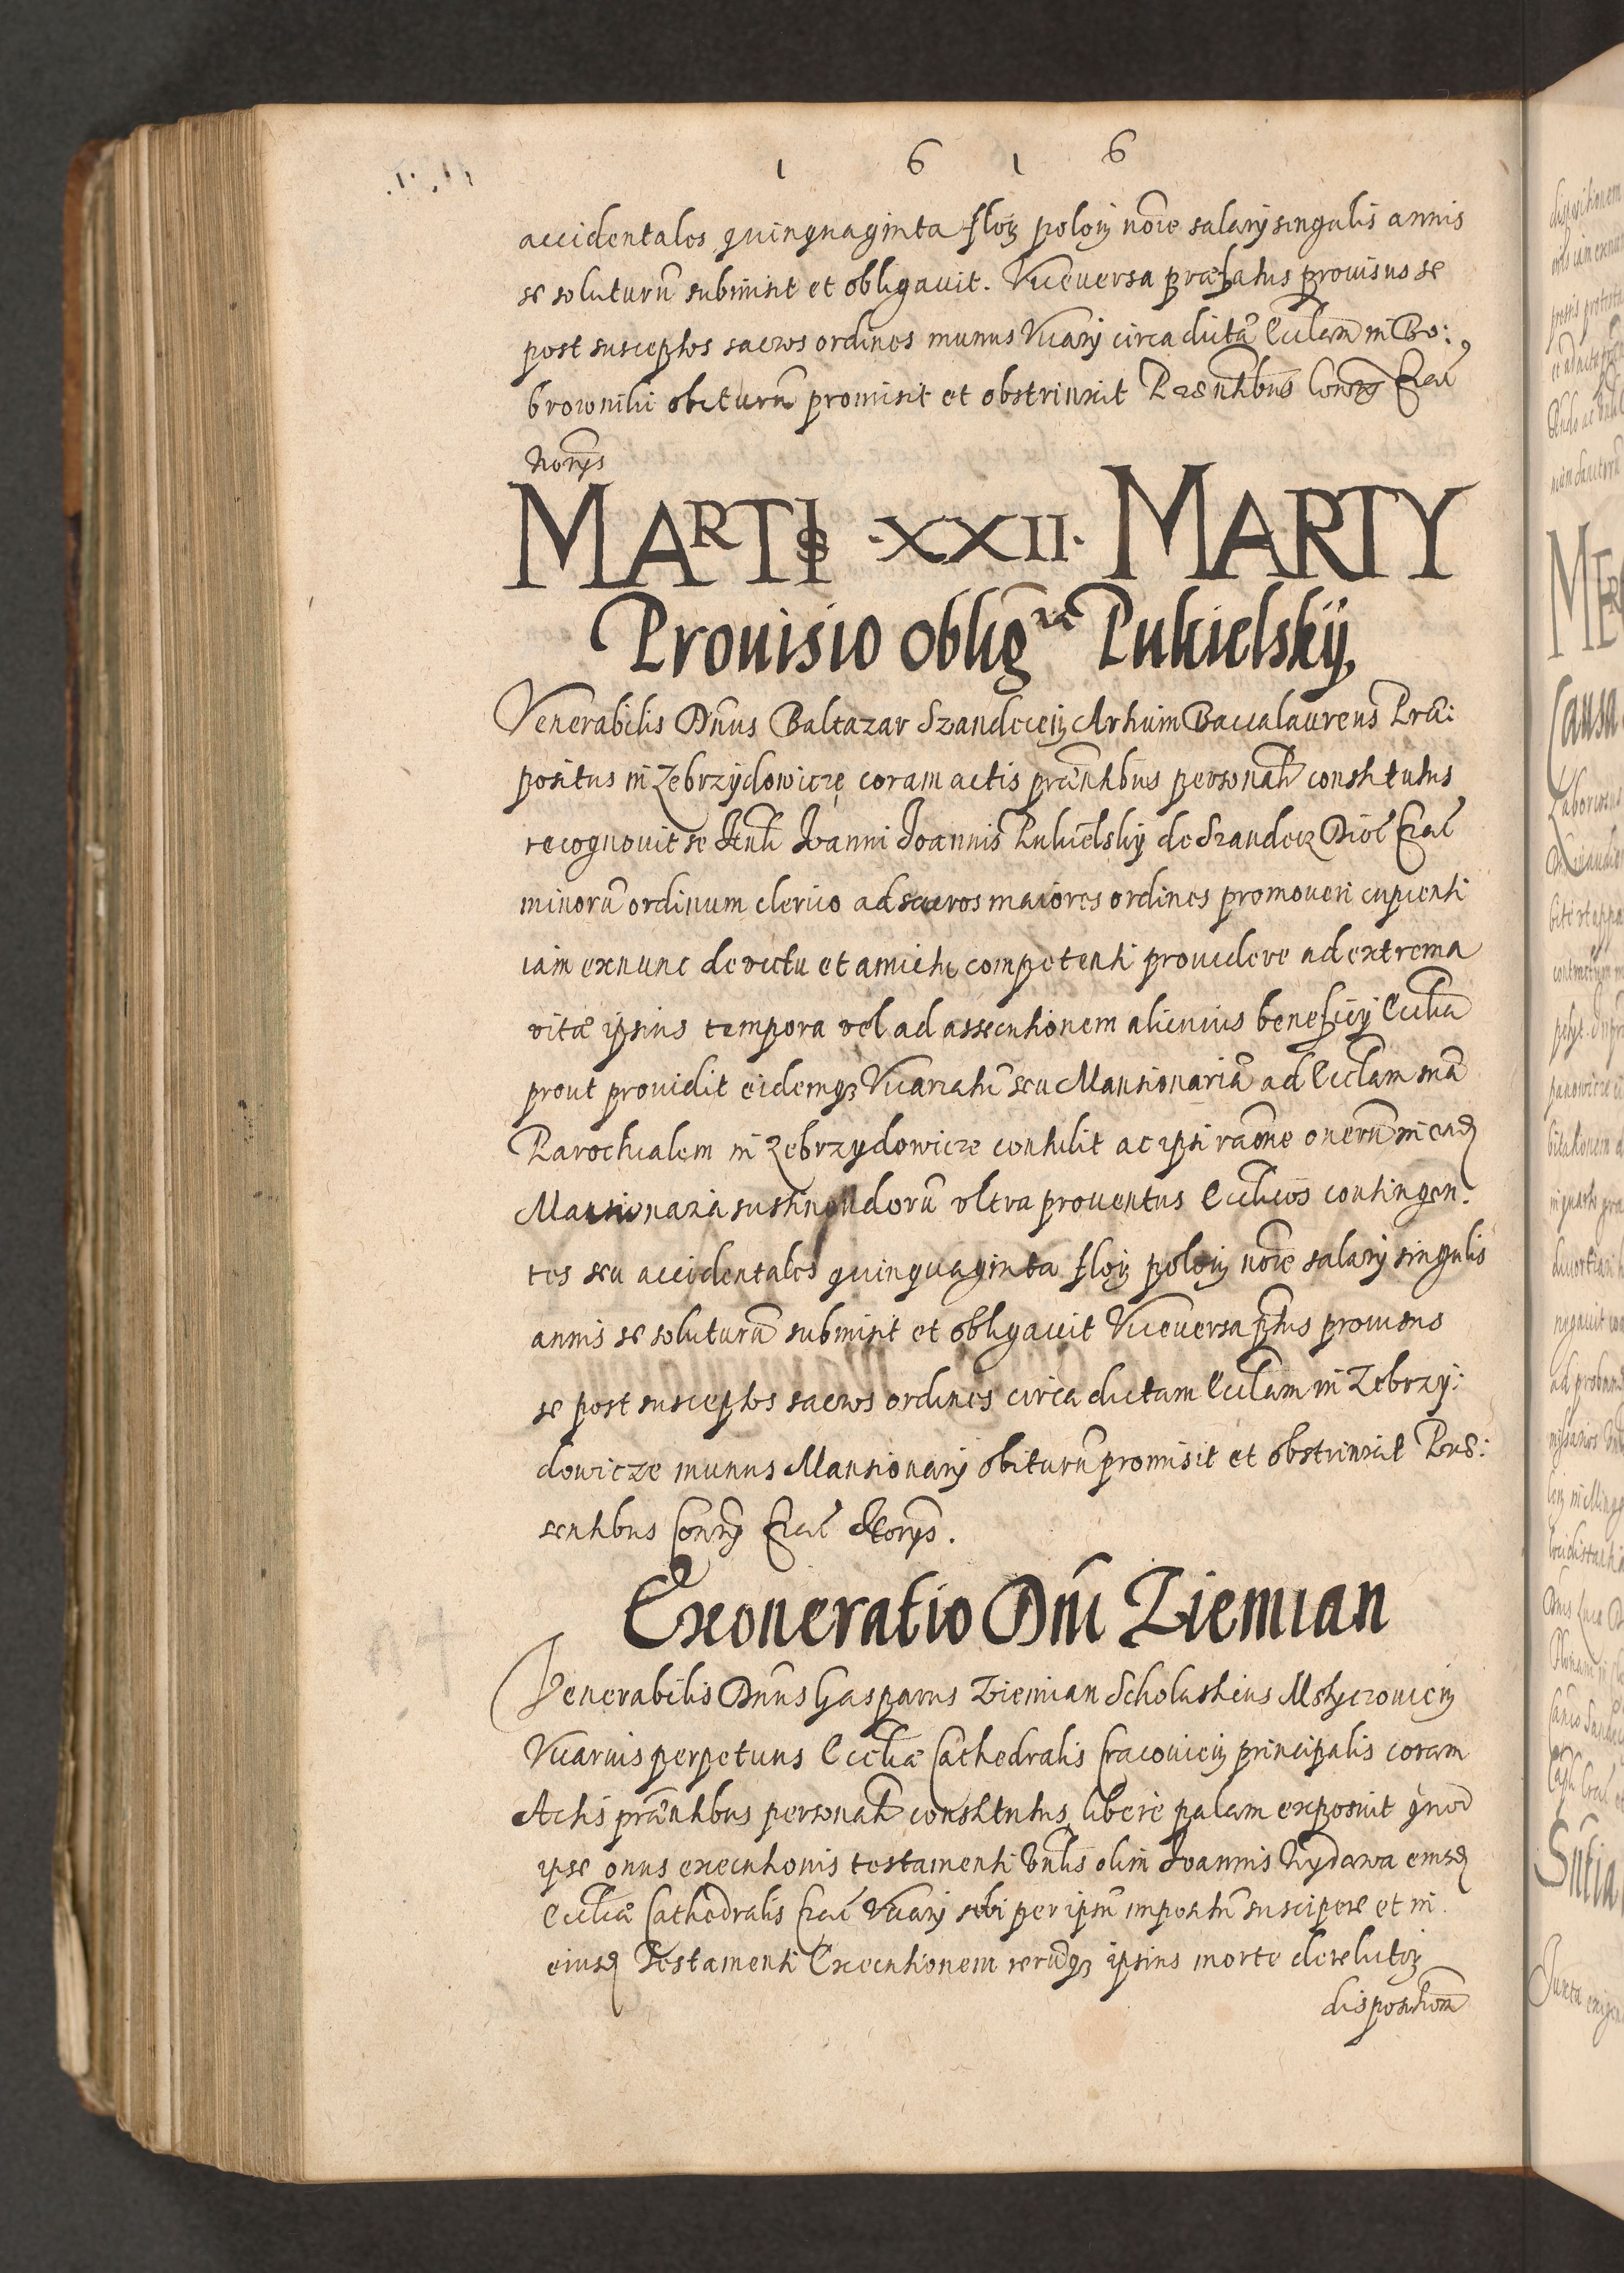 1 6 1 6
accidentales quinquaginta floɼ poloɼ nõie salarij singulis annis
se soluturũ submisit et obligauit. Viceuersa præfatus prouisus se
post susceptos sacros ordines munus Vicarij circa dictã Ecclam in Bo:
brownihi obiturũ promisit et obstrinxit Præsentibus Consts Crac
Norijs
MARTIS ·XXII· MARTY
Prouisio oblig^ria Pukielskij,
Venerabilis Dñus Baltazar Szandecen Artium Baccalaureus Præ:
positus in Zebrzydowicze coram actis præntibus personalr constitutus
recognouit se Hnli Ioanni Joannis Pukielskij de Szandecz Dioc Crac
minorũ ordinum clerico ad sacros maiores ordines promoueri cupienti
iam exnunc de victu et amictu competenti prouidere ad extrema
vitæ ipsius tempora vel ad assecutionem alicuius beneficij Ecclici
prout prouidit eidemqꝫ Vicariatũ seu Mansionariã ad Ecclam suã
Parochialem in Zebrzydowicze contulit ac ipsi raõne onerũ in ead
Mansionaria sustinendorũ vltra prouentus Ecclicos contingen.
tes seu accidentales quinquaginta floɼ poloɼ nõie salarij singulis
annis se soluturũ submisit et obligauit Viceuersa pftus prouisus
se post susceptos sacros ordines circa dictam Ecclam in Zebrzy:
dowicze munus Mansionarij obiturũ promisit et obstrinxit Præ:
sentibus Consts Crac Norijs.
Exoneratio Dñi Ziemian
Venerabilis Dñus Gasparus Ziemian Scholasticus Msticzouien
Vicarius perpetuus Ecclæ Cathedralis Cracouien principalis coram
Actis præntibus personalr constitutus, libere palam exposuit quod
ipse onus executionis testamenti Vnlis olim Ioannis Rydarwa eiusd
Ecclæ Cathedralis Crac Vicarij sibi per ipsũ impositũ suscipere et in
eiusd Testamenti Executionem rerũqꝫ ipsius morte derelictaɼ
dispositionẽ